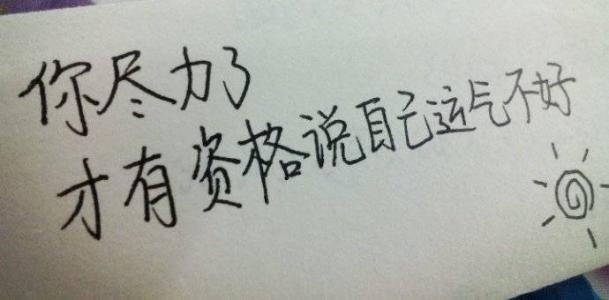 你尽力了
才有资格说自己运气不好